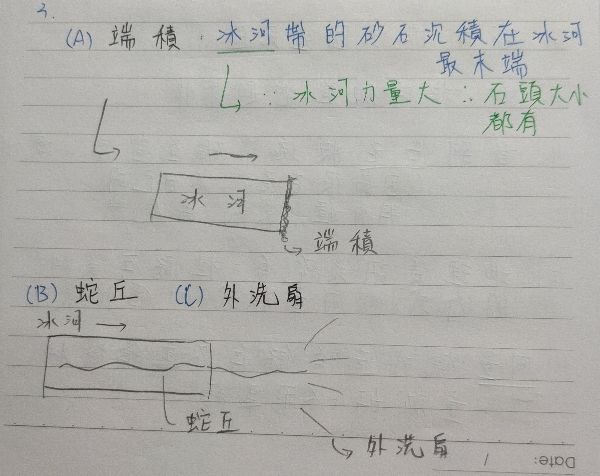 3.
(A) 端積：冰河帶的砂石沉積在冰河
最末端
∵ 冰河力量大 ∴ 石頭大小
都有
冰河
端積
(B) 蛇丘 (C) 外洗扇
冰河
蛇丘
外洗扇
Date: /